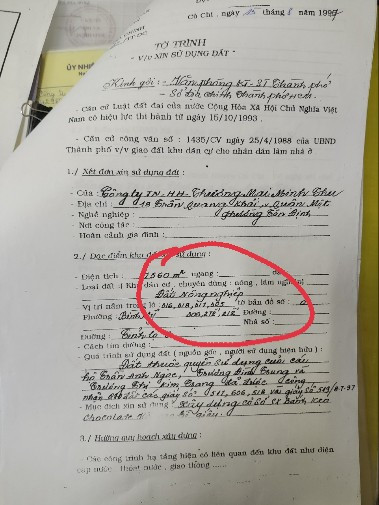 Củ Chi, ngày 15 tháng 8 năm 1997
TỜ TRÌNH
- V/v XIN SỬ DỤNG ĐẤT -
ỦY NHI
Kính gởi : - Văn phòng KT-ST Thành phố
- Sở địa chính Thành phố HCM
- Căn cứ Luật đất đai của nước Cộng Hòa Xã Hội Chủ Nghĩa Việt
Nam có hiệu lực thi hành từ ngày 15/10/1993 .
- Căn cứ công văn số : 1435/CV ngày 25/4/1988 của UBND
Thành phố v/v giao đất khu dân cư cho nhân dân làm nhà ở
1./ Xét đơn xin sử dụng đất :
- Của : Công ty TN-HH- Thương Mại Minh Thu
- Địa chỉ : 18 Trần Quang Khải, Quận Một
- Nghề nghiệp : Phường Tân Định
- Nơi công tác :
- Hoàn cảnh gia đình :
2./ Đặc điểm khu đất sử dụng :
- Diện tích : 7560 m² ngang :
- Loại đất ( Khu dân cư , chuyên dùng : nông , lâm nghiệp )
Đất Nông nghiệp
Vị trí nằm trong lô 016, 018, 017, tờ bản đồ số :
Phường : Đường :
Nhà số :
Đường : Tỉnh lộ
- Cách tim đường :
- Quá trình sử dụng đất ( nguồn gốc , người sử dụng hiện hữu ) :
Đất thuộc quyền sử dụng của các
hộ Trần Anh Ngọc, Trương Đình Trung và
Trương Thị Kim Trang đã được công
nhận các giấy số 517, 606, 518 và giấy số
- Mục đích xin sử dụng : Xây dựng cơ sở SX Bánh Kẹo
Chocolate
3./ Hướng quy hoạch xây dựng :
Các công trình hạ tầng hiện có liên quan đến khu đất như điện
cúp nước , thoát nước , giao thông ......